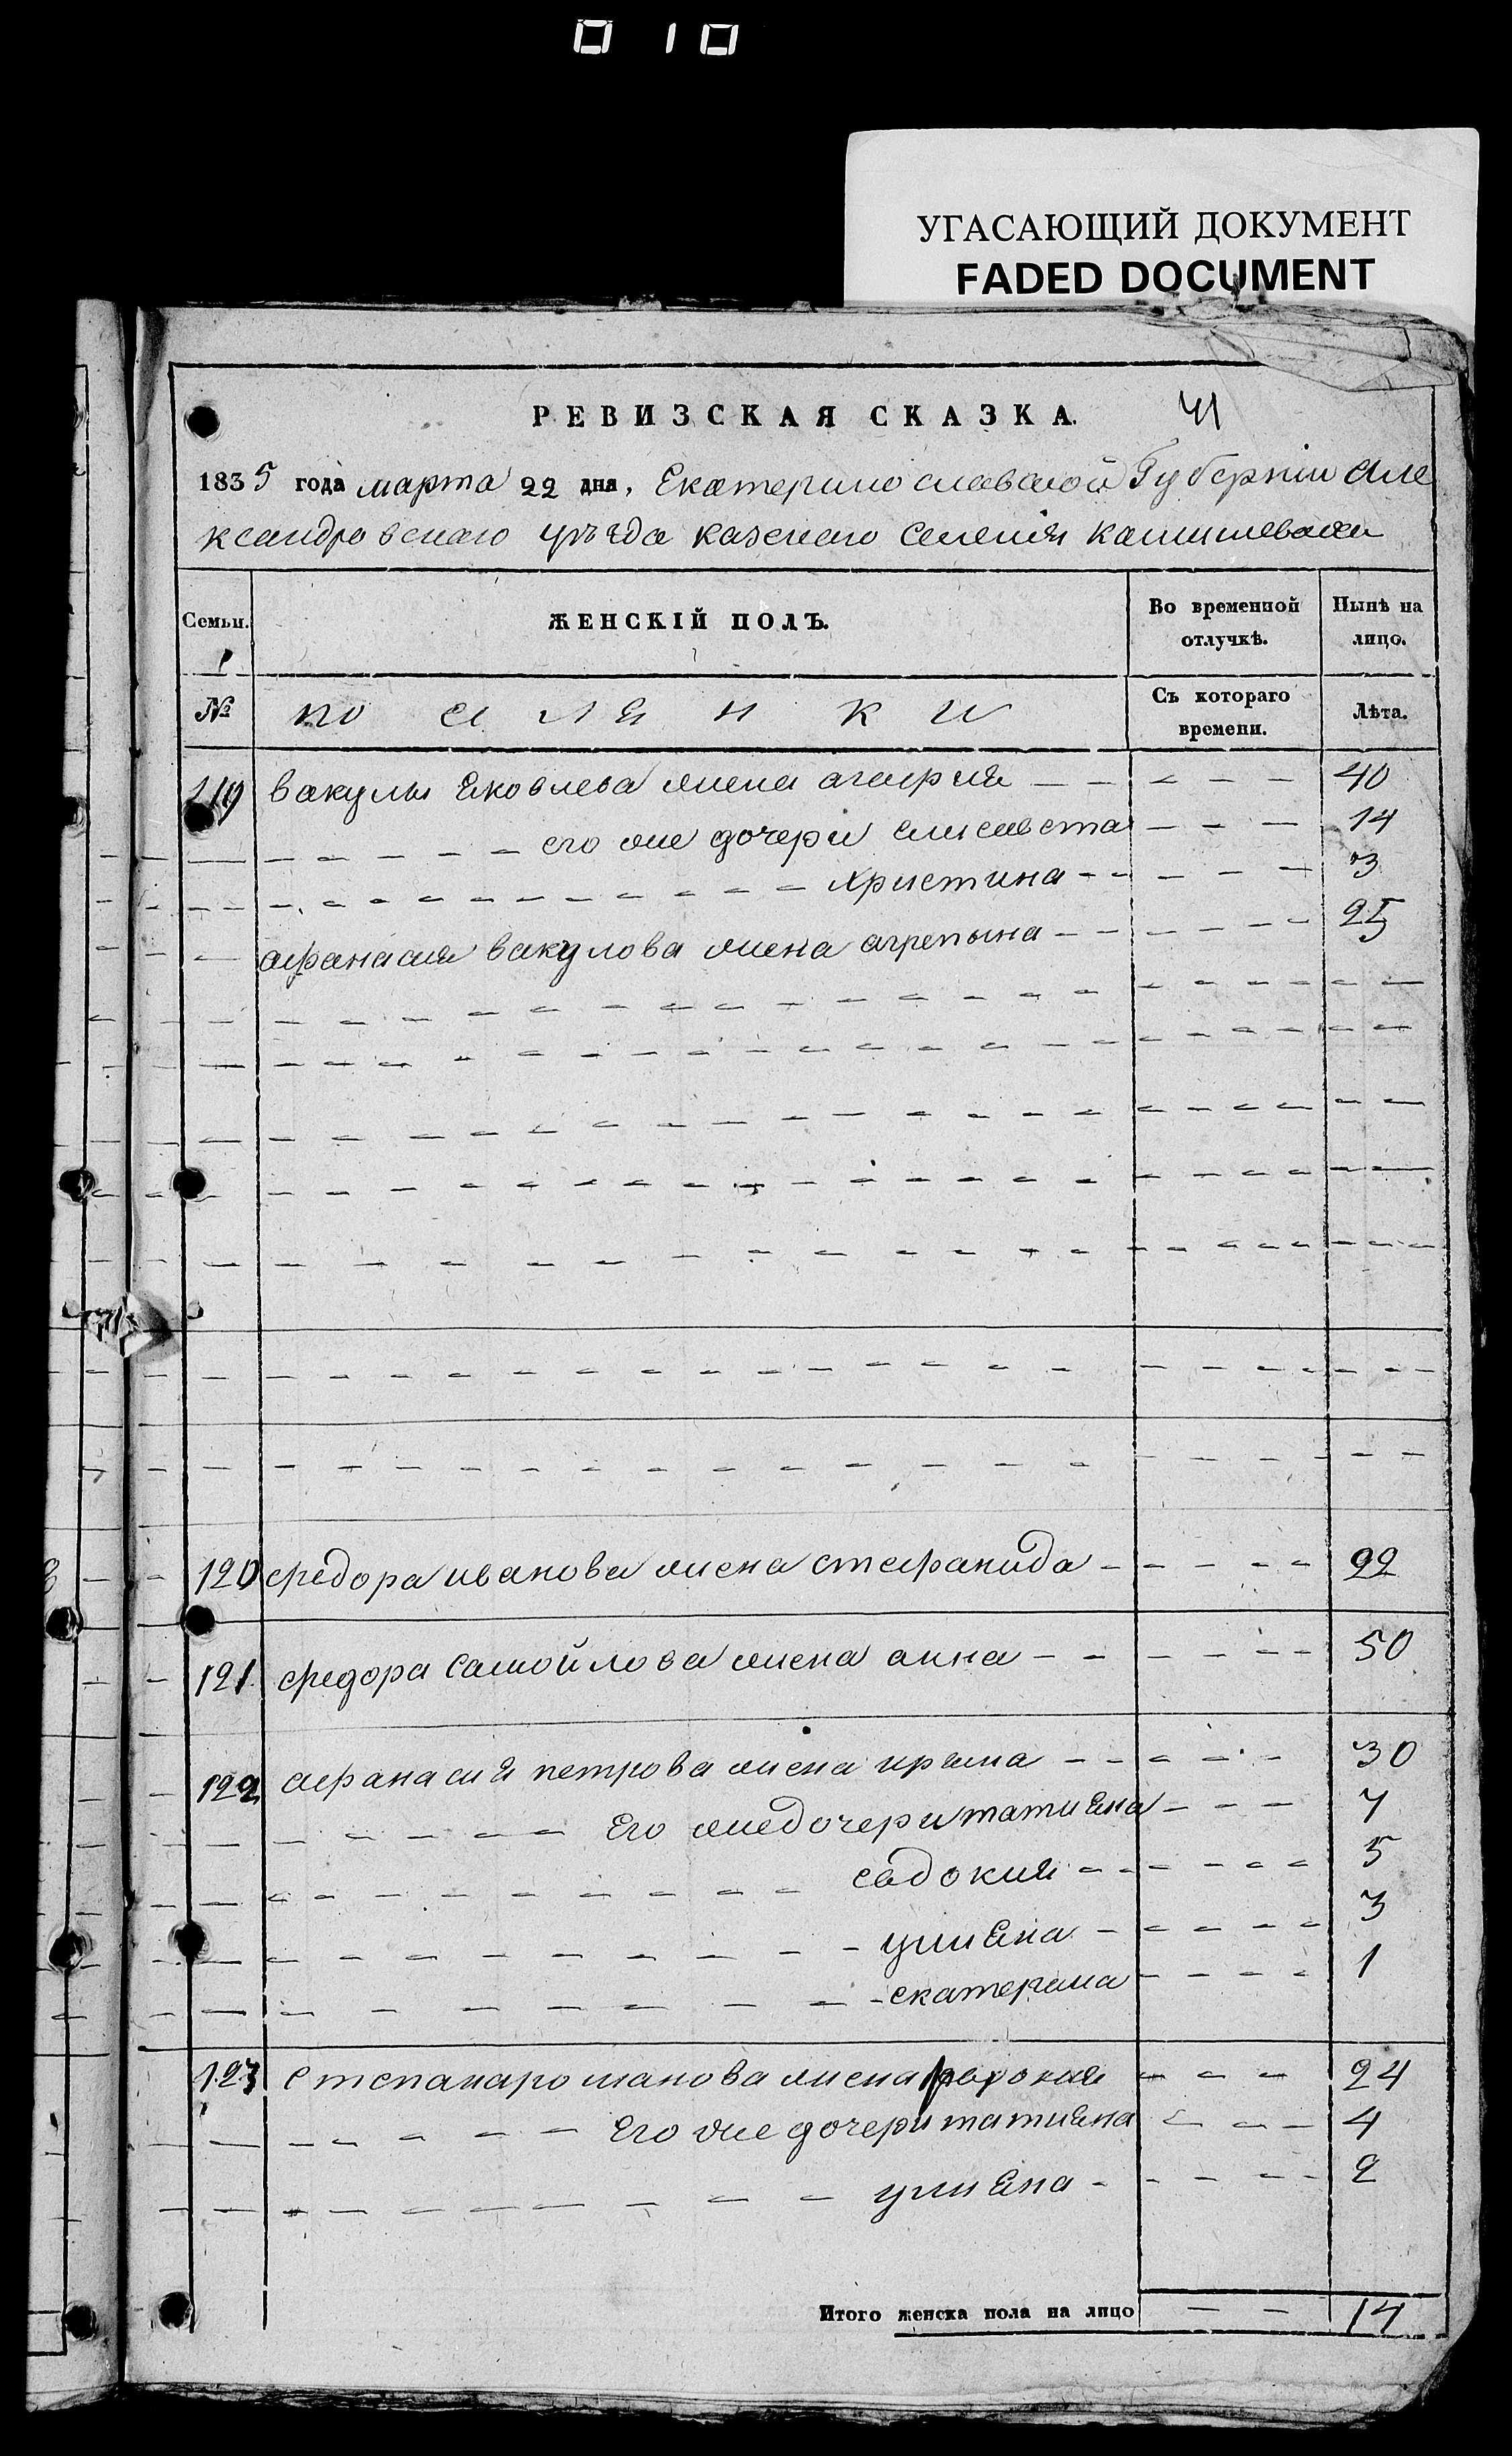 010
УГАСАЮЩИЙ ДОКУМЕНТ
FADED DOCUMENT
РЕВИЗСКАЯ СКАЗКА.
41
1835 года марта 22 дня, Екатеринославской Губернии Але
ксандровскаго уѣзда казенаго Селения
Семьи. ЖЕНСКІЙ ПОЛЪ. Во временной отлучкѣ. Нынѣ на лицо.
№ поселенки Съ котораго времени. Лѣта.
119 вакулы Яковлева жена агафия 40
его же дочери елисавета 14
христина 3
афанасия вакулова жена агрепына 25
120 федора иванова жена стефанида 22
121 федора самойлова жена анна 50
122 афанасия петрова жена ирина 30
Его же дочери татияна 7
евдокия 5
улияна 3
екатерина 1
123 степана романова жена 24
Его же дочери татияна 4
улияна 2
Итого женска пола на лицо 14